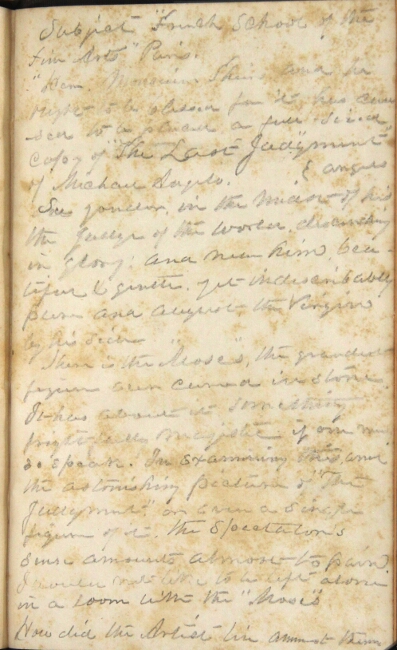 Subject "French School of the
Fine Arts" Paris.
"Here Monsieur Thiers, and he
ought to be blessed for it has cau-
sed to be placed a full-sized
copy of "The Last Judgment"
of Michael Angelo. { angels
See yonder, in the midst of his
the Judge of the world, descending
in glory; and near him, beau-
tiful & gentle, yet indescribably
pure and august the Virgin
by his side.
Then is the "Moses", the grandest
figure ever carved in stone.
It has about it something
frightfully majestic if one may
so speak. In examining this and
the astonishing picture of "The
Judgment" or even a single
figure of it. The Spectator's
sense amounts almost to pain.
I would not like to be left alone
in a room with the "Moses"
How did the Artist live amongst them